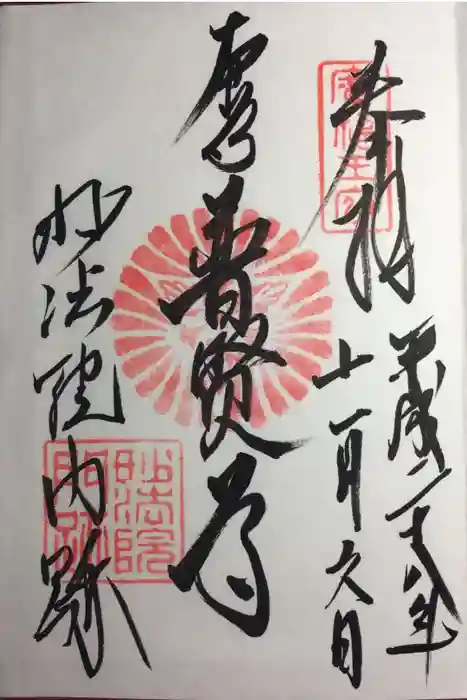 奉拝
平成二十八年
十一月九日
普賢尊
妙法院門跡
妙法院
門跡